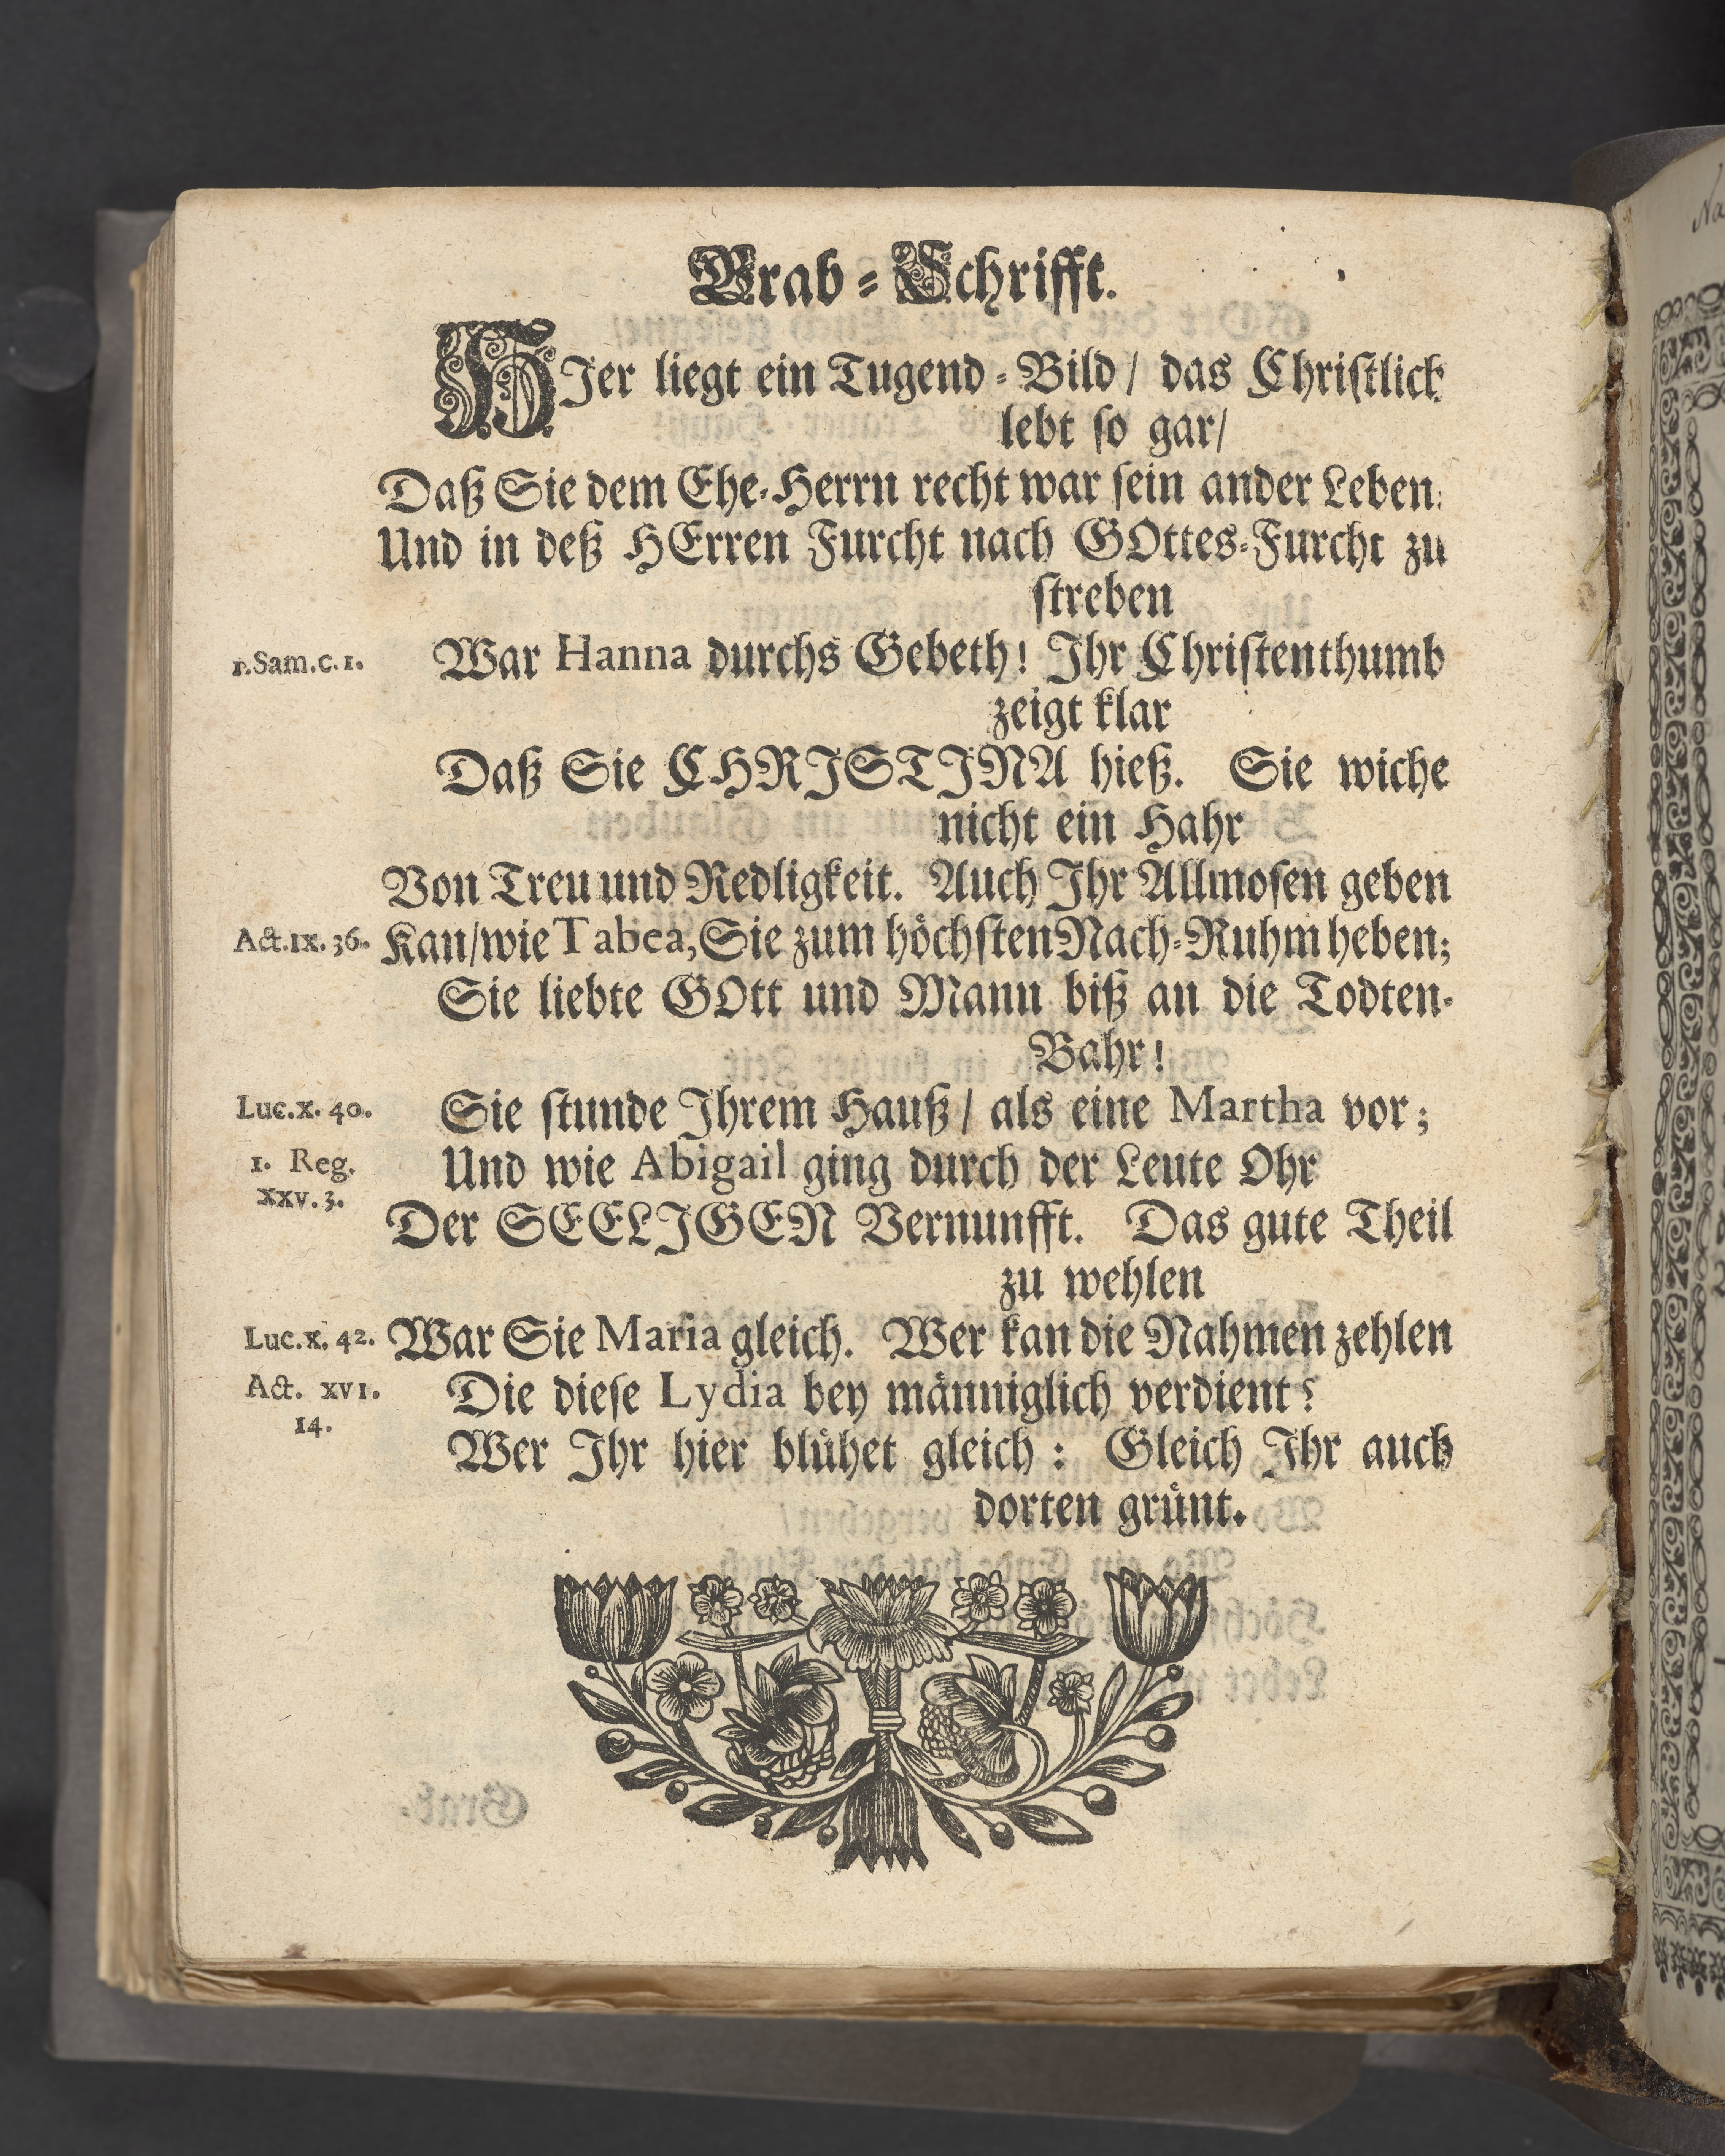 Grab-Schrifft.
HIer liegt ein Tugend-Bild/ das Christlich
lebt so gar/
Daß Sie dem Ehe-Herrn recht war sein ander Leben:
Und in deß HErren Furcht nach GOttes-Furcht zu
streben
1. Sam. c. 1. War Hanna durchs Gebeth! Ihr Christenthumb
zeigt klar
Daß Sie CHRISTINA hieß. Sie wiche
nicht ein Hahr
Von Treu und Redligkeit. Auch Ihr Allmosen geben
Act. IX. 36. Kan/ wie Tabea, Sie zum höchsten Nach-Ruhm heben;
Sie liebte GOtt und Mann biß an die Todten-
Bahr!
Luc. X. 40. Sie stunde Ihrem Hauß/ als eine Martha vor;
1. Reg. Und wie Abigail ging durch der Leute Ohr
XXV. 3.
Der SEELIGEN Vernunfft. Das gute Theil
zu wehlen
Luc. X. 42. War Sie Maria gleich. Wer kan die Nahmen zehlen
Act. XVI. Die diese Lydia bey männiglich verdient?
14.
Wer Ihr hier blühet gleich: Gleich Ihr auch
dorten grünt.